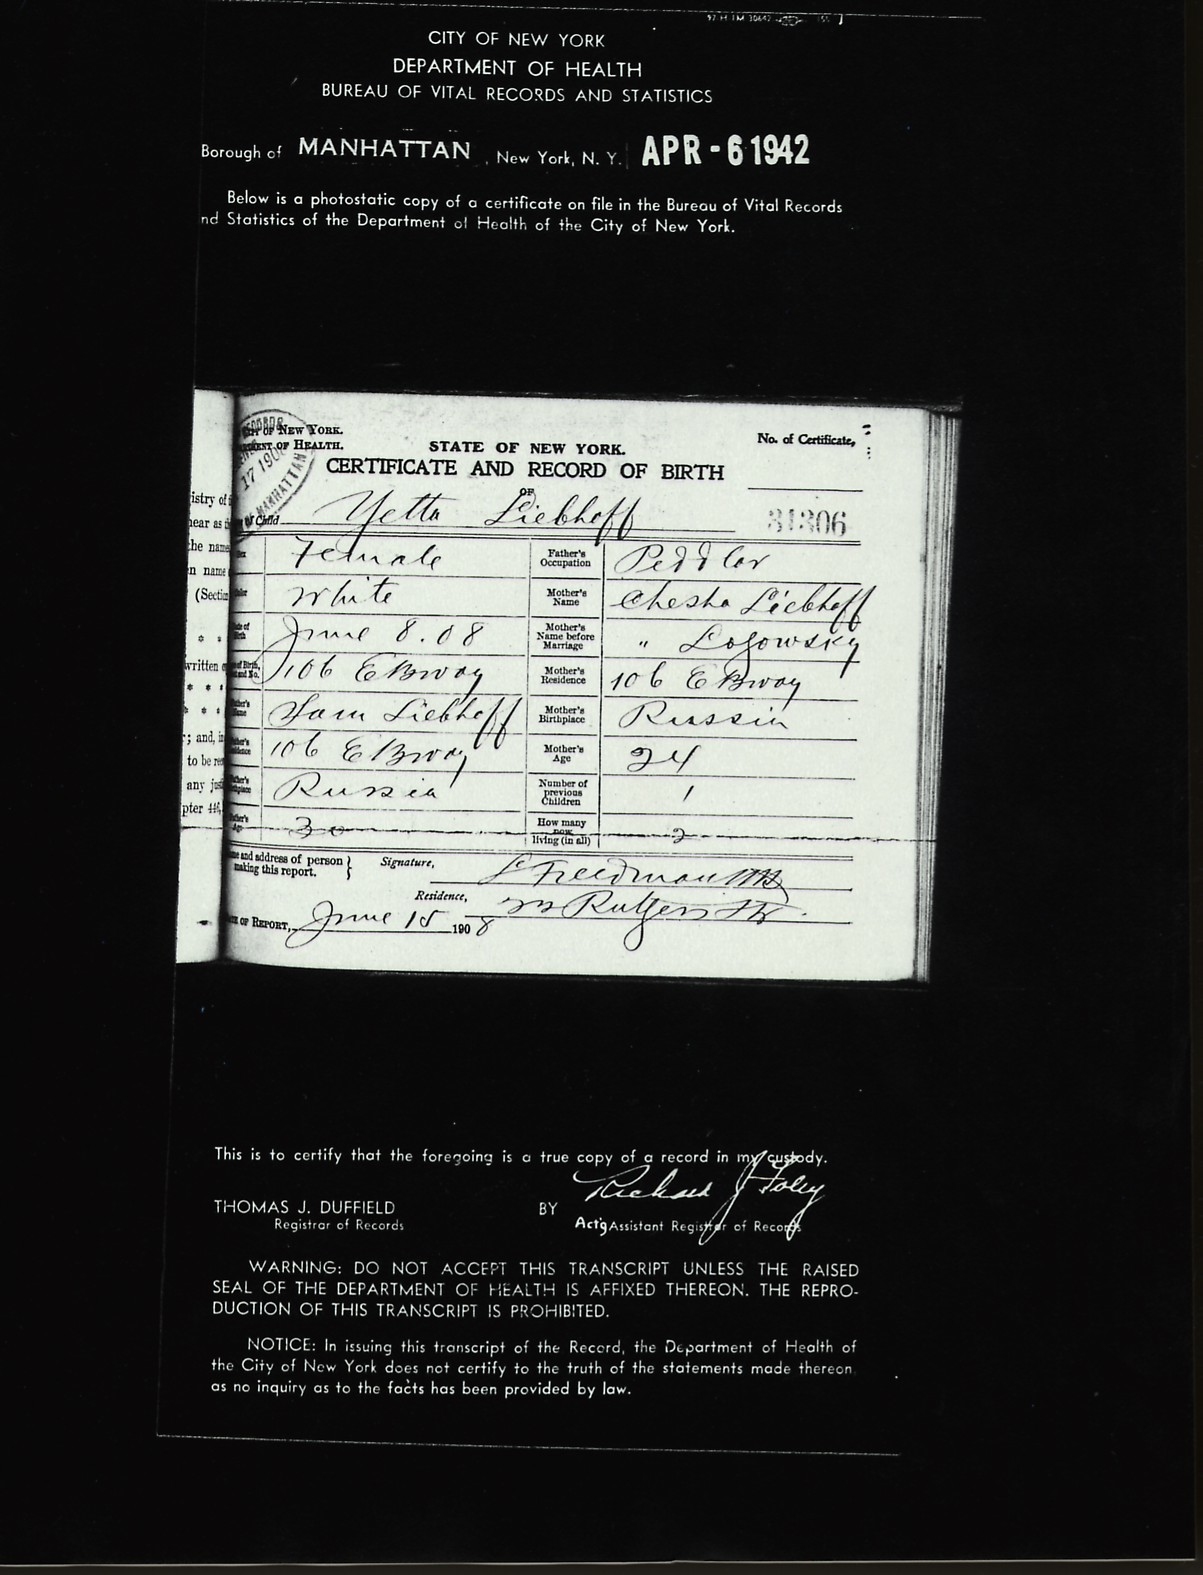 CITY OF NEW YORK
DEPARTMENT OF HEALTH
BUREAU OF VITAL RECORDS AND STATISTICS
Borough of MANHATTAN , New York, N. Y. APR - 6 1942
Below is a photostatic copy of a certificate on file in the Bureau of Vital Records
nd Statistics of the Department of Health of the City of New York.
OF NEW YORK.
OF HEALTH.
STATE OF NEW YORK.
No. of Certificate,
CERTIFICATE AND RECORD OF BIRTH
OF
Child Yetta Liebhoff 31306
Female Father's Occupation Peddlar
White Mother's Name Chesha Liebhoff
June 8. 08 Mother's Name before Marriage " Logowsky
106 E Bway Mother's Residence 106 E Bway
Sam Liebhoff Mother's Birthplace Russia
106 E Bway Mother's Age 24
Russia Number of previous Children 1
30 How many now living (in all) 2
and address of person making this report. Signature, Freedman MD
Residence, Rutgers Str.
OF REPORT, June 15 1908
This is to certify that the foregoing is a true copy of a record in my custody.
THOMAS J. DUFFIELD BY Richard J Foley
Registrar of Records Act'g Assistant Registrar of Records
WARNING: DO NOT ACCEPT THIS TRANSCRIPT UNLESS THE RAISED
SEAL OF THE DEPARTMENT OF HEALTH IS AFFIXED THEREON. THE REPRO-
DUCTION OF THIS TRANSCRIPT IS PROHIBITED.
NOTICE: In issuing this transcript of the Record, the Department of Health of
the City of New York does not certify to the truth of the statements made thereon,
as no inquiry as to the facts has been provided by law.